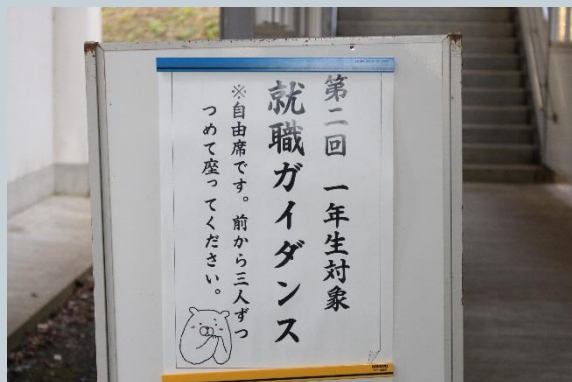 第二回 一年生対象
就職ガイダンス
※自由席です。前から三人ずつ
つめて座ってください。